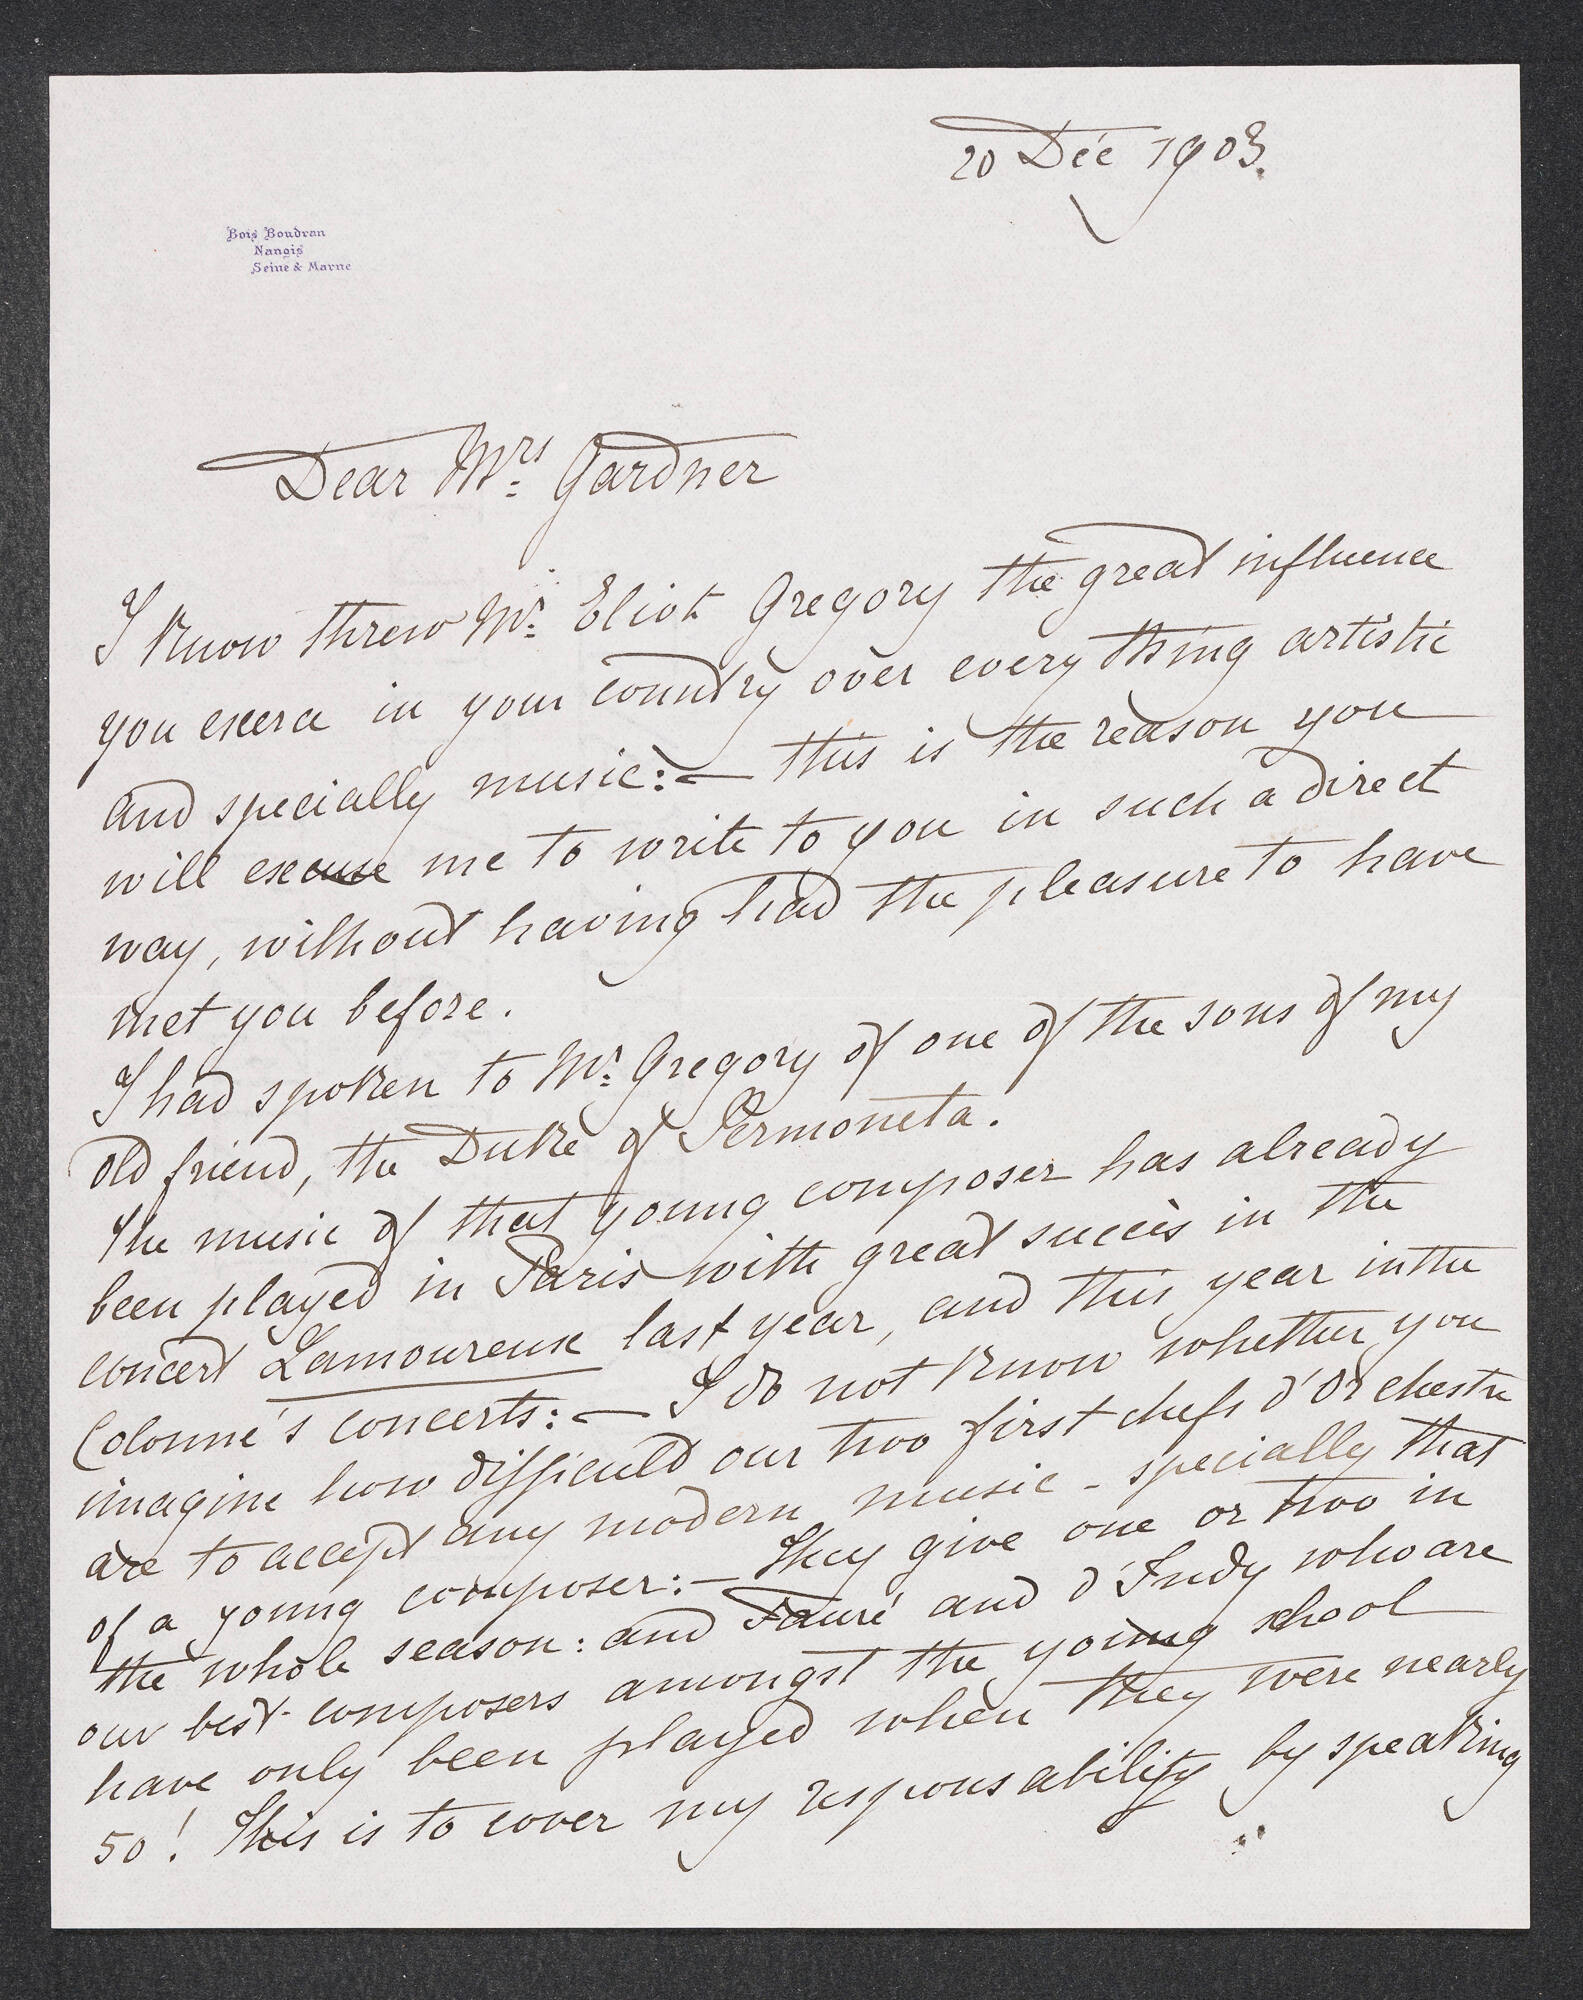 20 Déc 1903.
Bois Boudran
Nangis
Seine & Marne
Dear Mrs Gardner
I know threw Mr Eliot Gregory the great influence
you exera in your country over every thing artistic
and specially music:— this is the reason you
will excuse me to write to you in such a direct
way, without having had the pleasure to have
met you before.
I had spoken to Mr Gregory of one of the sons of my
old friend, the Duke of Sermoneta.
The music of that young composer has already
been played in Paris with great succès in the
concert Lamoureux last year, and this year in the
Colonne's concerts:— I do not know whether you
imagine how difficuld our two first chefs d'orchestre
are to accept any modern music - specially that
of a young composer:— They give one or two in
the whole season: and Fauré and d'Indy who are
our best composers amongst the young school
have only been played when they were nearly
50! This is to cover my responsability by speaking